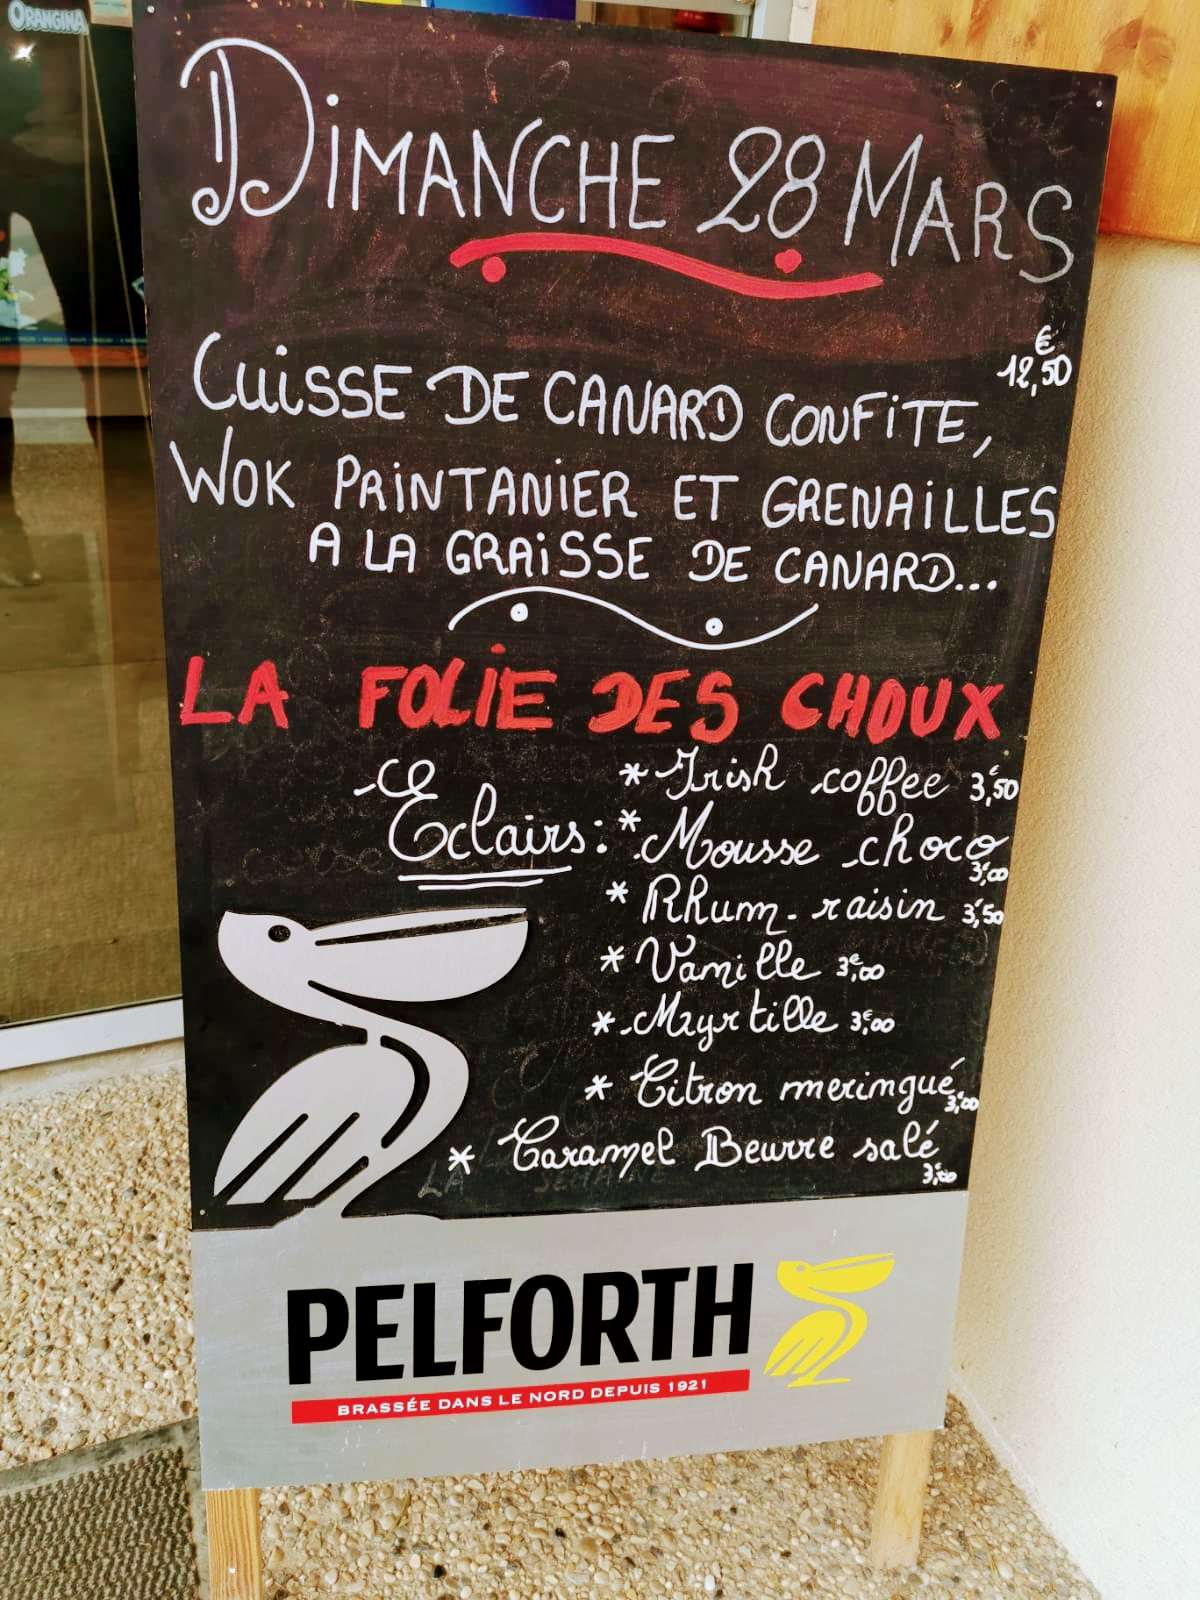 ORANGINA
DIMANCHE 28 MARS
€
12,50
CUISSE DE CANARD CONFITE,
WOK PRINTANIER ET GRENAILLES
A LA GRAISSE DE CANARD...
LA FOLIE DES CHOUX
Eclairs:
* Irish coffee 3,€50
* Mousse choco 3,€00
* Rhum-raisin 3,€50
* Vanille 3,€00
* Myrtille 3,€00
* Citron meringué 3,€00
* Caramel Beurre salé 3,€00
LA SEMAINE
PELFORTH
BRASSÉE DANS LE NORD DEPUIS 1921